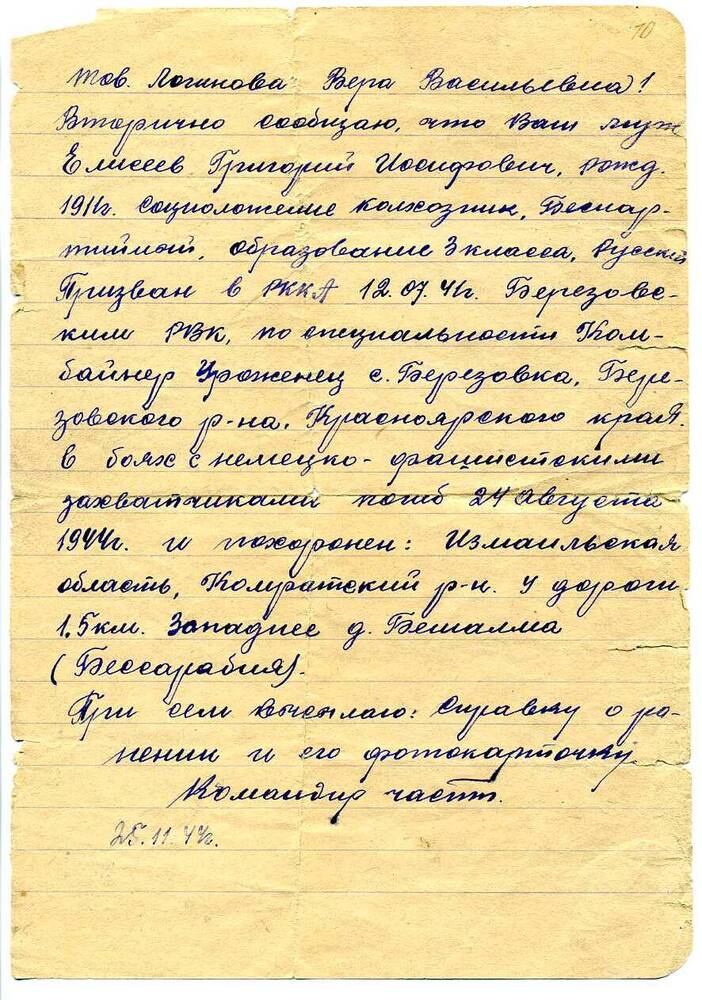 10
тов. Логинова Вера Васильевна!
Вторично сообщаю, что Ваш муж
Елисеев Григорий Иосифович, рожд.
1911г. социоложение колхозник, Беспар-
тийный, образование 3 класса, русский
Призван в РККА 12.07.41г. Березовс-
ким РВК, по специальности Ком-
байнер Уроженец с. Березовка, Бере-
зовского р-на, Красноярского края.
в боях с немецко-фашистскими
захватчиками погиб 24 Августа
1944г. и похоронен: Измаильская
область, Комратский р-н. у дороги
1,5 км. Западнее д. Бешалма
(Бессарабия).
При сем высылаю: Справку о ра-
нении и его фотокарточку
Командир части.
25.11.44г.